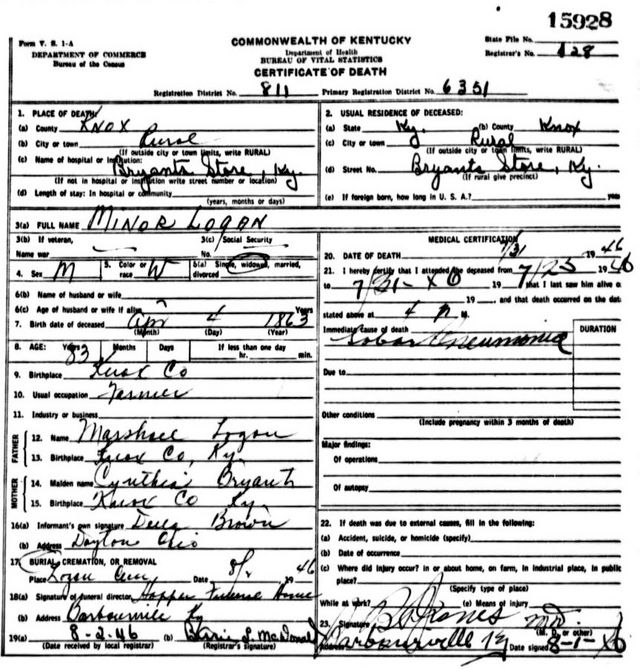 15928
Form V. S. 1-A
DEPARTMENT OF COMMERCE
Bureau of the Census
COMMONWEALTH OF KENTUCKY
Department of Health
BUREAU OF VITAL STATISTICS
CERTIFICATE OF DEATH
State File No.
Registrar's No. 128
Registration District No. 811 Primary Registration District No. 6351
1. PLACE OF DEATH
(a) County Knox
(b) City or town Rural
(If outside city or town limits, write RURAL)
(c) Name of hospital or institution:
Bryants Store, Ky.
(If not in hospital or institution write street number or location)
(d) Length of stay: In hospital or community
(years, months or days)
2. USUAL RESIDENCE OF DECEASED:
(a) State Ky. (b) County Knox
(c) City or town Rural
(If outside city or town limits, write RURAL)
(d) Street No. Bryants Store, Ky.
(If rural give precinct)
(e) If foreign born, how long in U. S. A.? years
3(a) FULL NAME MINOR LOGAN
3(b) If veteran,
Name war
3(c) Social Security
4. Sex M 5. Color or race W 6(a) Single, widowed, married, divorced
6(b) Name of husband or wife
6(c) Age of husband or wife if alive Years
7. Birth date of deceased Apr 4 1863
(Month) (Day) (Year)
8. AGE: Years 83 Months Days If less than one day
hr. min.
9. Birthplace Knox Co
10. Usual occupation Farmer
11. Industry or business
FATHER
12. Name Marshall Logan
13. Birthplace Knox Co, Ky.
MOTHER
14. Maiden name Cynthia Bryant
15. Birthplace Knox Co Ky.
16(a) Informant's own signature Brown
(b) Address Dayton Ohio
17. BURIAL, CREMATION, OR REMOVAL
Place Logan Cem Date 8/ 1946
18(a) Signature of funeral director Hopper Funeral Home
(b) Address Barbourville Ky
19(a) 8-2-46 (b) L. McDonald
(Date received by local registrar) (Registrar's signature)
MEDICAL CERTIFICATION
20. DATE OF DEATH 7/31 1946
21. I hereby certify that I attended the deceased from 7/25 1946
to 7/31-46 19 , that I last saw him alive on
19 , and that death occurred on the date
stated above at 4 P M.
Immediate cause of death
Lobar Pneumonia
DURATION
Due to
Other conditions
(Include pregnancy within 3 months of death)
Major findings:
Of operations
Of autopsy
22. If death was due to external causes, fill in the following:
(a) Accident, suicide, or homicide (specify)
(b) Date of occurrence
(c) Where did injury occur? in or about home, on farm, in industrial place, in public
place?
(Specify type of place)
While at work? (e) Means of injury
23. Signature Jones MD
(M. D. or other)
Address Barbourville Ky Date signed 8-1-46